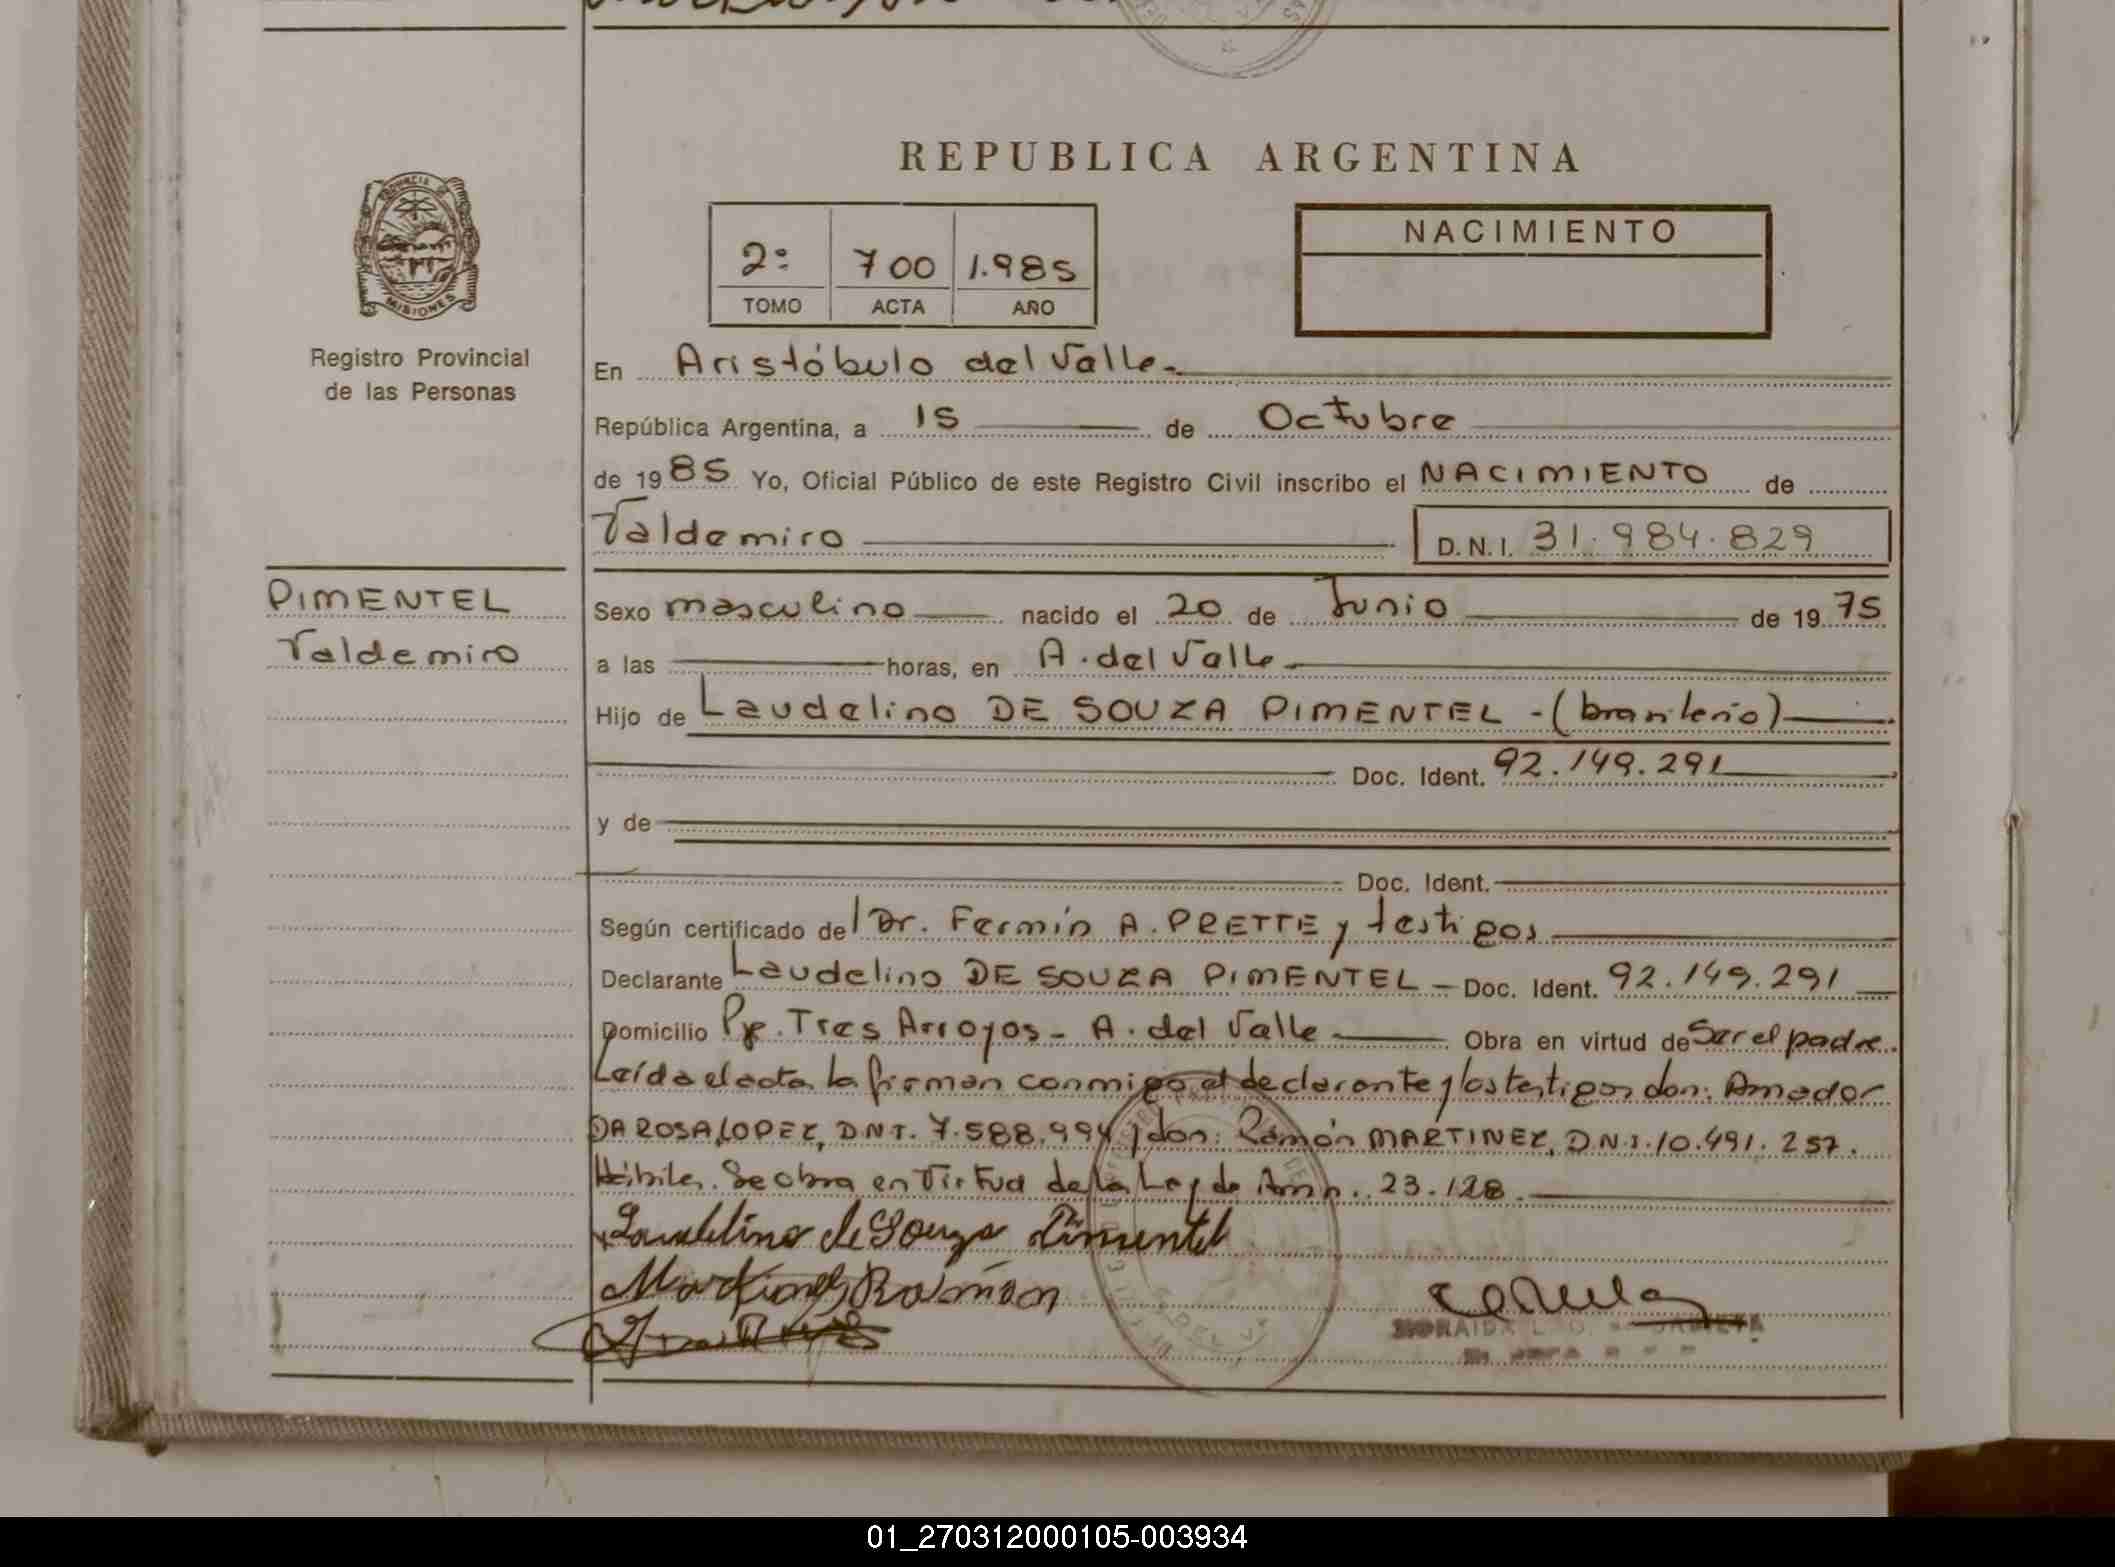 REPUBLICA ARGENTINA
PROVINCIA DE
MISIONES
Registro Provincial
de las Personas
2º 700 1.985
TOMO ACTA AÑO
NACIMIENTO
En Aristóbulo del Valle.
República Argentina, a 15 de Octubre
de 1985 Yo, Oficial Público de este Registro Civil inscribo el NACIMIENTO de
Valdemiro D.N.I. 31.984.829
PIMENTEL
Valdemiro
Sexo masculino nacido el 20 de Junio de 1975
a las horas, en A. del Valle
Hijo de Laudelino DE SOUZA PIMENTEL - (brasileño)
Doc. Ident. 92.149.291
y de
Doc. Ident.
Según certificado del Dr. Fermín A. PRETTE y testigos
Declarante Laudelino DE SOUZA PIMENTEL - Doc. Ident. 92.149.291
Domicilio Pje. Tres Arroyos - A. del Valle Obra en virtud de Ser el padre.
Leída el acta la firman conmigo el declarante y los testigos don: Amador
DA ROSA LOPEZ, DNI. 7.588.994 y don: Ramón MARTINEZ, D.N.I. 10.491.257.
Hábiles. Se obra en Virtud de la Ley de Amn. 23.128.
Laudelino de Souza Pimentel
Martinez Ramón
01_270312000105-003934